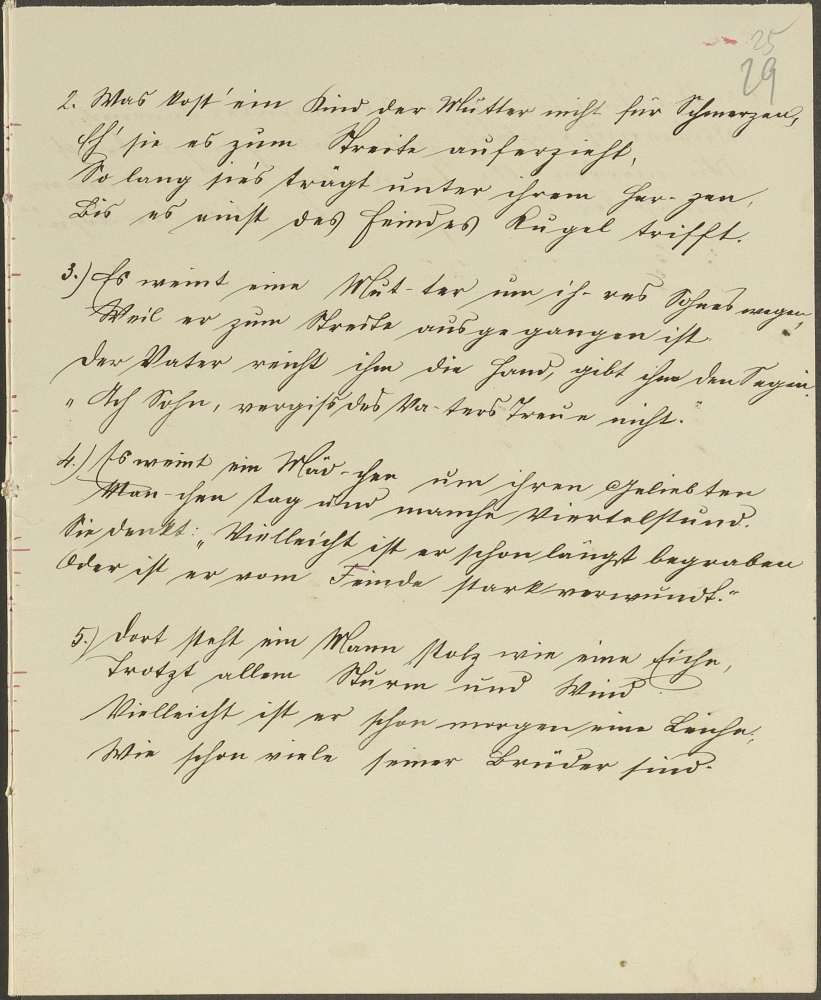 25
29
2. Was kost' ein Kind der Mutter nicht für Schmerzen,
Eh' sie es zum Streite auferzieht,
So lang sie's trägt unter ihrem Her-zen,
Bis es einst des Feindes Kugel trifft.
3.) Es weint eine Mut-ter um ih-res Sohnes wegen,
Weil er zum Streite ausgegangen ist.
Der Vater reicht ihm die Hand, gibt ihm den Segen.
"Ach Sohn, vergiß des Va-ters Treue nicht."
4.) Es weint ein Mäd-chen um ihren Geliebten
Man-chen Tag und manche Viertelstund.
Sie denkt: "Vielleicht ist er schon längst begraben
Oder ist er vom Feinde stark verwundt."
5.) Dort steht ein Mann stolz wie eine Eiche,
Trotzt allem Sturm und Wind.
Vielleicht ist er schon morgen eine Leiche,
Wie schon viele seiner Brüder sind.